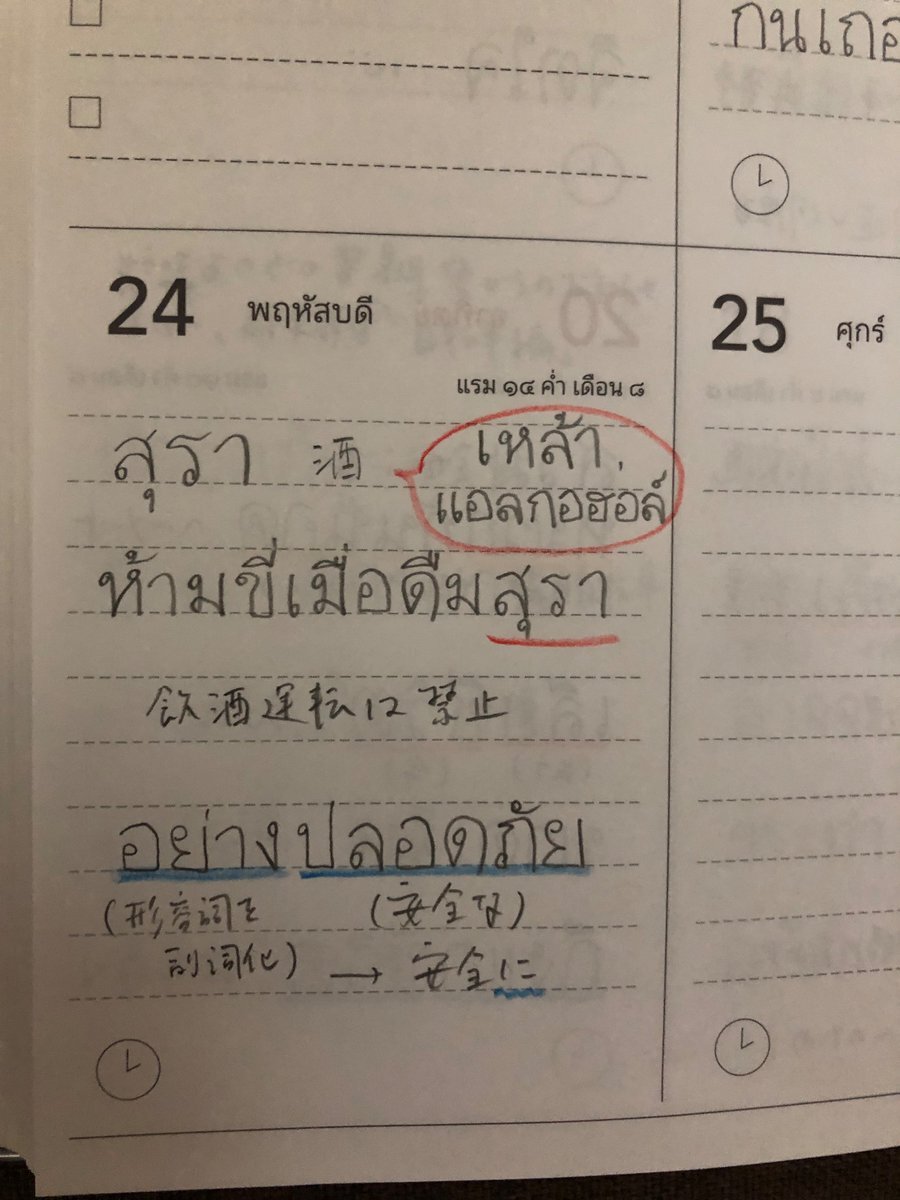 กนเถอ
24 พฤหัสบดี
แรม ๑๔ ค่ำ เดือน ๘
สุรา 酒 เหล้า,
แอลกอฮอล์
ห้ามขี่เมื่อดืมสุรา
飲酒運転は禁止
อย่างปลอดภัย
(形容詞を (安全な)
副詞化) → 安全に
25 ศุกร์